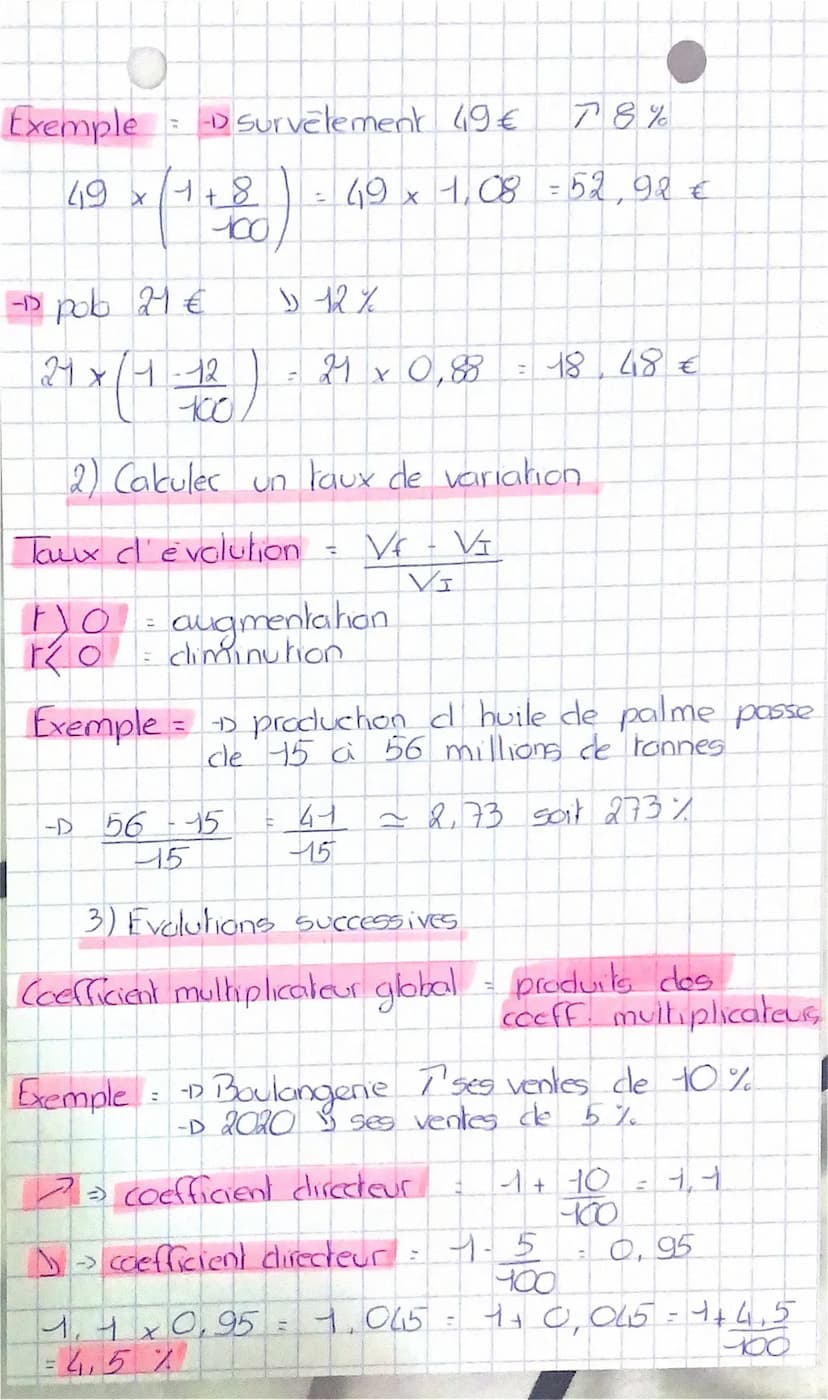 Exemple = → survêtement 49 € ↗ 8 %
49 × (1 + 8/100) = 49 × 1,08 = 52,92 €
→ pob 21 € ↘ 12 %
21 × (1 - 12/100) = 21 × 0,88 = 18,48 €
2) Calculer un taux de variation
Taux d'évolution = (Vf - VI)/VI
t > 0 = augmentation
t < 0 = diminution
Exemple = → production d'huile de palme passe
de 15 à 56 millions de tonnes
→ (56 - 15)/15 = 41/15 ≃ 2,73 soit 273 %
3) Évolutions successives
Coefficient multiplicateur global = produits des
coeff. multiplicateurs
Exemple = → Boulangerie ↗ ses ventes de 10 %
→ 2020 ↘ ses ventes de 5 %
↗ ⇒ coefficient directeur = 1 + 10/100 = 1,1
↘ → coefficient directeur = 1 - 5/100 = 0,95
1,1 × 0,95 = 1,045 = 1 + 0,045 = 1 + 4,5/100
= 4,5 %